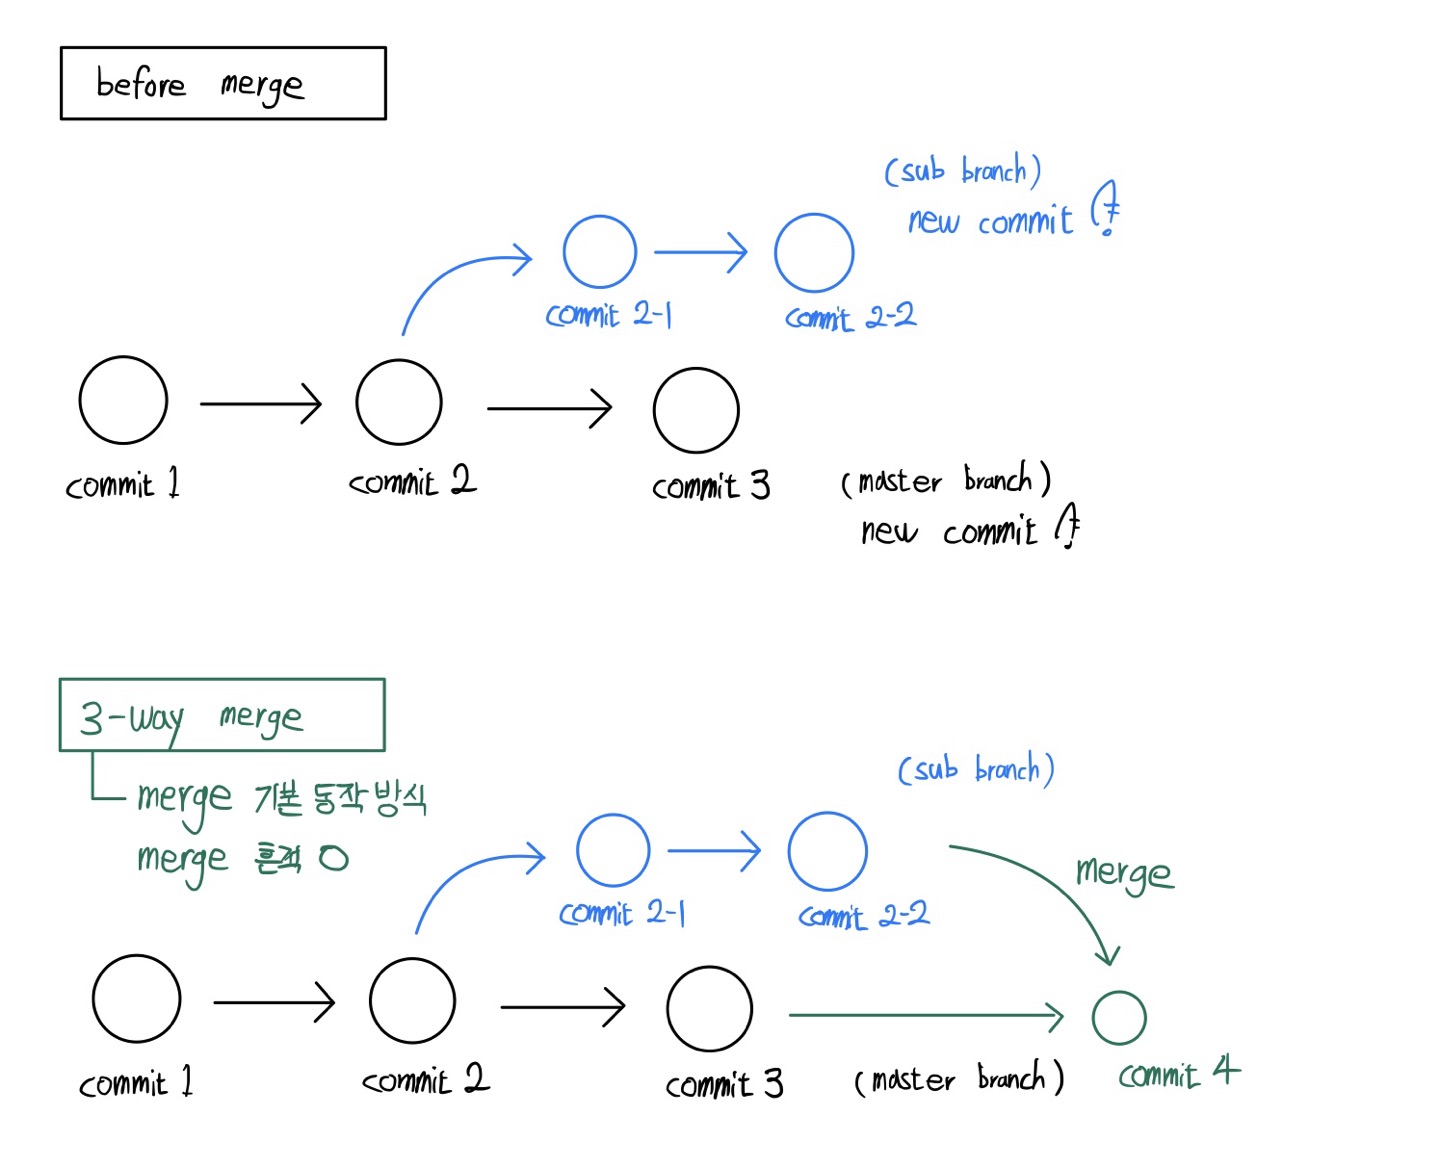 before merge
(sub branch)
new commit 有
commit 2-1
commit 2-2
commit 1
commit 2
commit 3
(master branch)
new commit 有
3-way merge
merge 기본 동작 방식
merge 흔적 O
(sub branch)
merge
commit 2-1
commit 2-2
commit 1
commit 2
commit 3
(master branch)
commit 4